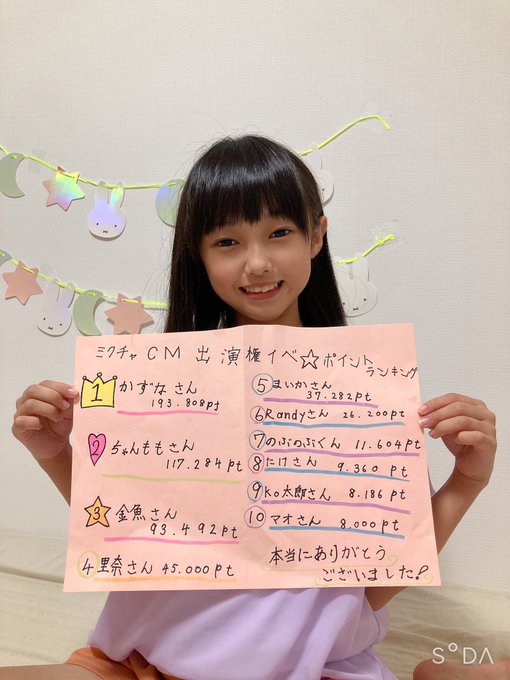 ミクチャ CM 出演権イベ☆ポイント
ランキング
1 かずなさん
193.808pt
2 ちゃんももさん
117.284pt
3 金魚さん
93.492pt
4 里奈さん 45.000pt
5 まいかさん
37.282pt
6 Randyさん 26.200pt
7 のぶのぶくん 11.604pt
8 たけさん 9.360 pt
9 Ko太郎さん 8.186 pt
10 マオさん 8,000pt
本当にありがとう
ございました!
SODA